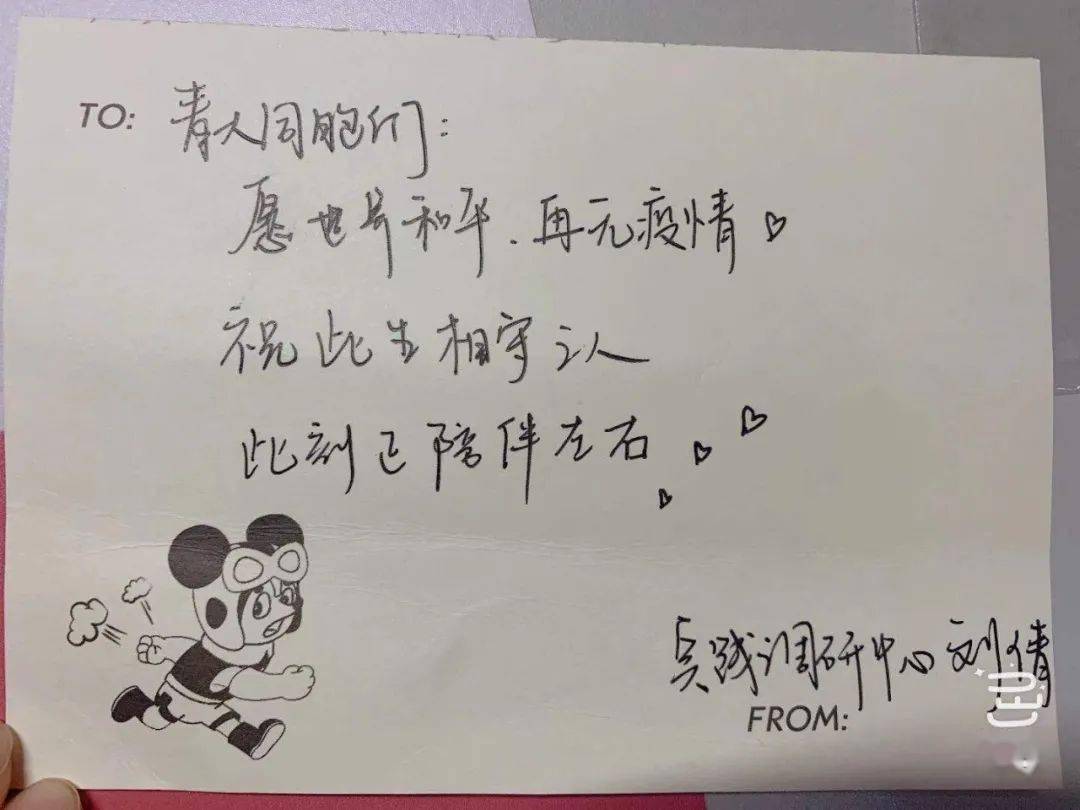 TO: 青大同胞们:
愿世界和平.再无疫情♡
祝此生相守之人
此刻已陪伴左右.♡♡♡
实践调研中心刘倩
FROM: